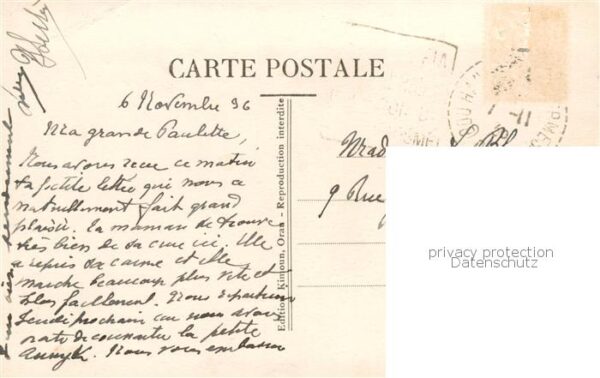 CARTE POSTALE
6 Novembre 36
Ma grande Paulette,
Nous avons reçu ce matin
ta petite lettre qui nous a
naturellement fait grand
plaisir. La maman se trouve
très bien de sa cure ici. Elle
a repris sa canne et elle
marche beaucoup plus vite et
plus facilement. Nous repartirons
Jeudi prochain car nous avons
hate de connaitre la petite
Annyck. Nous vous embrassons
bien tendrement
Edition Kimoun, Oran - Reproduction interdite
Mad
9 Rue
privacy protection
Datenschutz